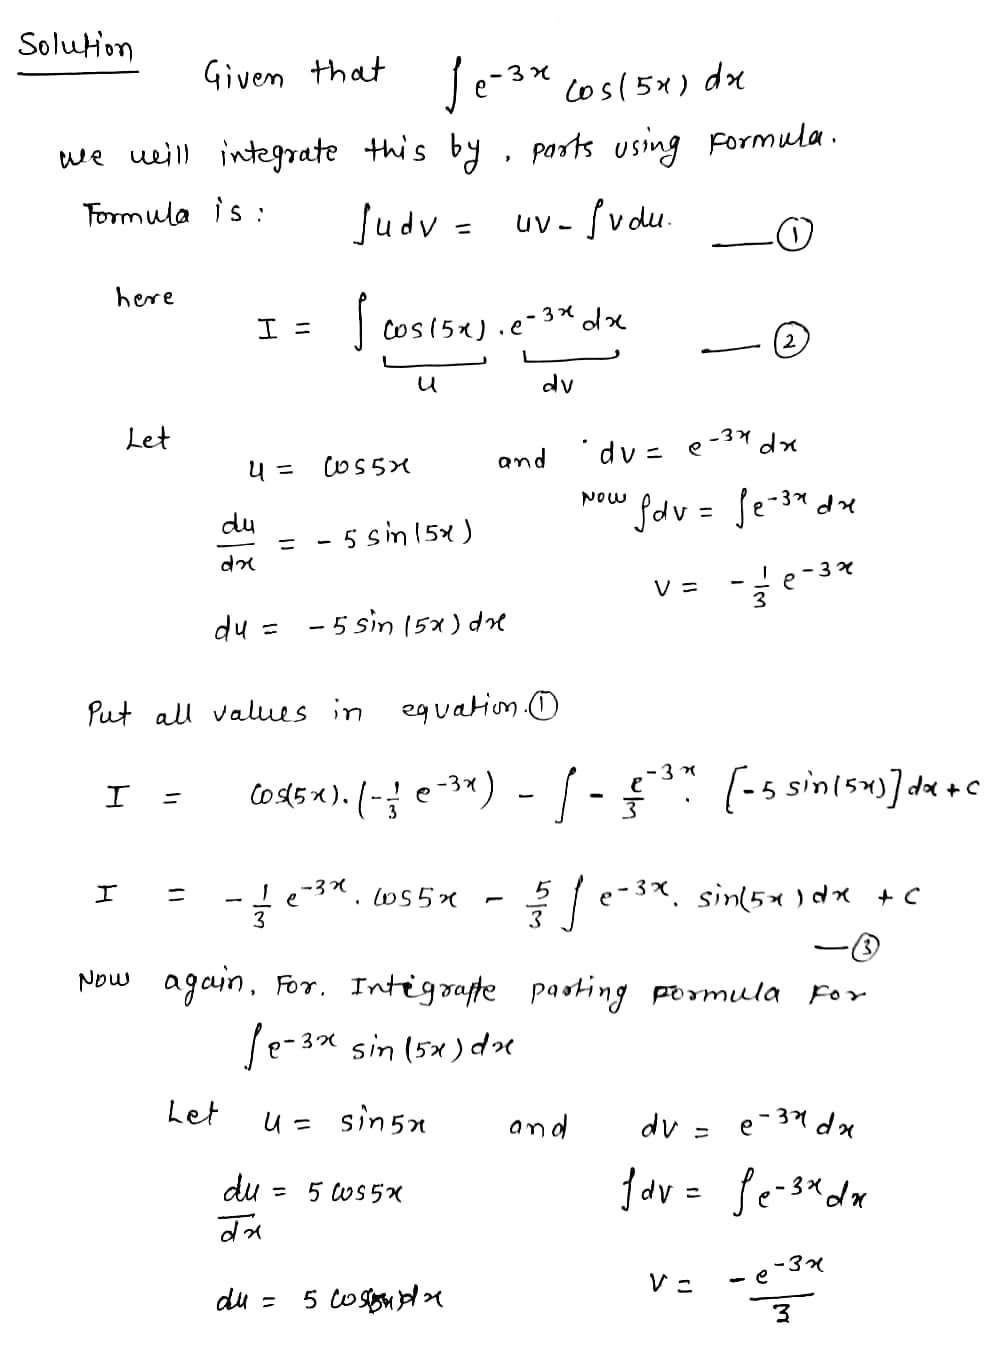 Solution
Given that ∫ e^-3x cos(5x) dx
we will integrate this by , parts using Formula.
Formula is : ∫udv = uv - ∫vdu. —①
here
I = ∫ cos(5x) . e^-3x dx —②
u dv
Let u = cos5x and dv = e^-3x dx
Now ∫dv = ∫e^-3x dx
du/dx = - 5 sin(5x)
v = - 1/3 e^-3x
du = - 5 sin (5x) dx
Put all values in equation.①
I = cos(5x). (-1/3 e^-3x) - ∫ - e^-3x/3 . [-5 sin(5x)] dx + c
I = - 1/3 e^-3x . cos5x - 5/3 ∫ e^-3x. sin(5x) dx + c
—③
Now again, For. Integrate parting formula for
∫e^-3x sin (5x) dx
Let u = sin5x and dv = e^-3x dx
du/dx = 5 cos5x ∫dv = ∫e^-3x dx
du = 5 cos5x dx v = -e^-3x/3